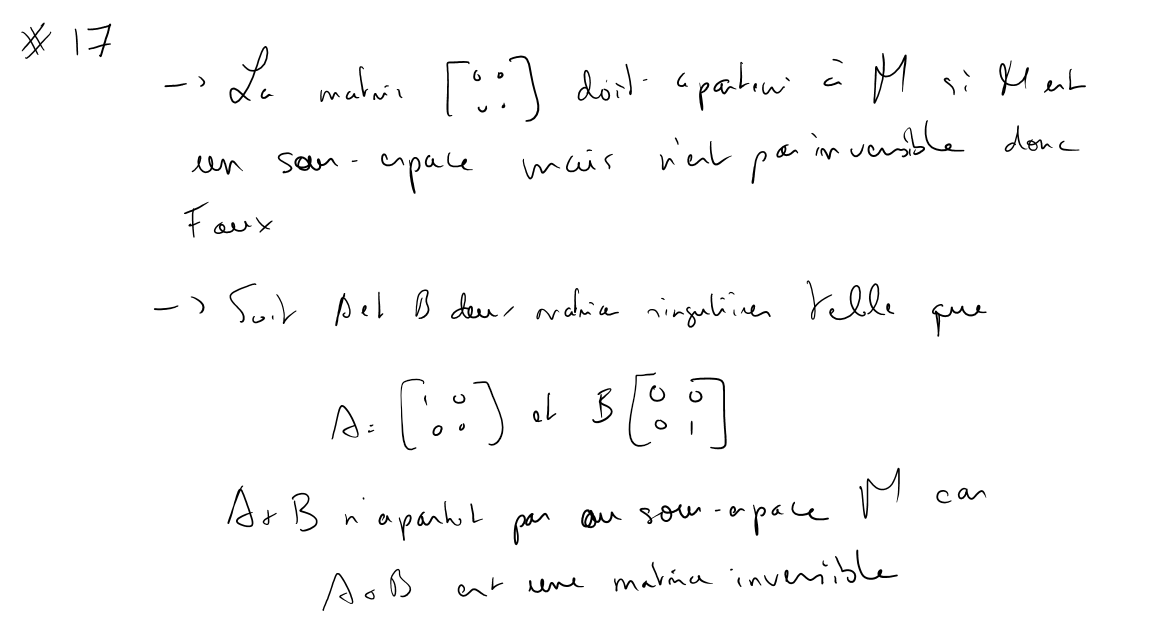 # 17
-> La matrice [0 0 0 0] doit apartenir à M si M est
un sous-espace mais n'est pas inversible donc
Faux
-> Soit A et B deux matrice singulière telle que
A = [1 0 0 0] et B [0 0 0 1]
A+B n'apartient pas au sous-espace M car
A+B est une matrice inversible